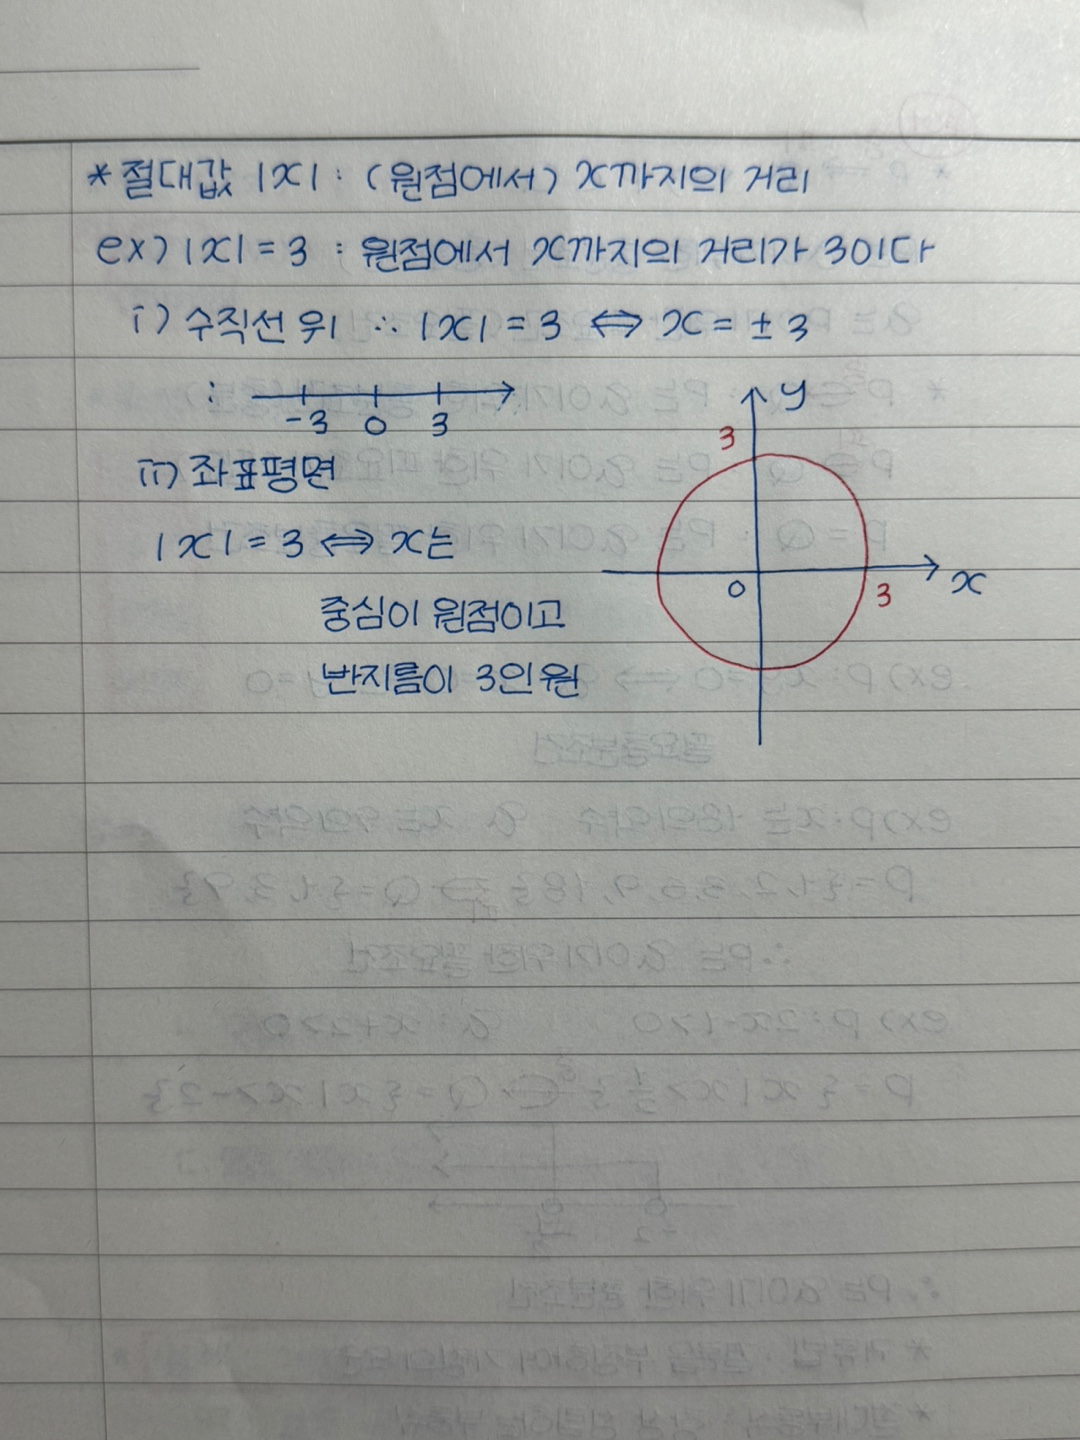 * 절대값 |x| : (원점에서) x까지의 거리
ex) |x| = 3 : 원점에서 x까지의 거리가 3이다
i) 수직선 위 ∴ |x| = 3 ⇔ x = ± 3
:
-3 0 3
y
3
ii) 좌표평면
|x| = 3 ⇔ x는
0 3 x
중심이 원점이고
반지름이 3인 원